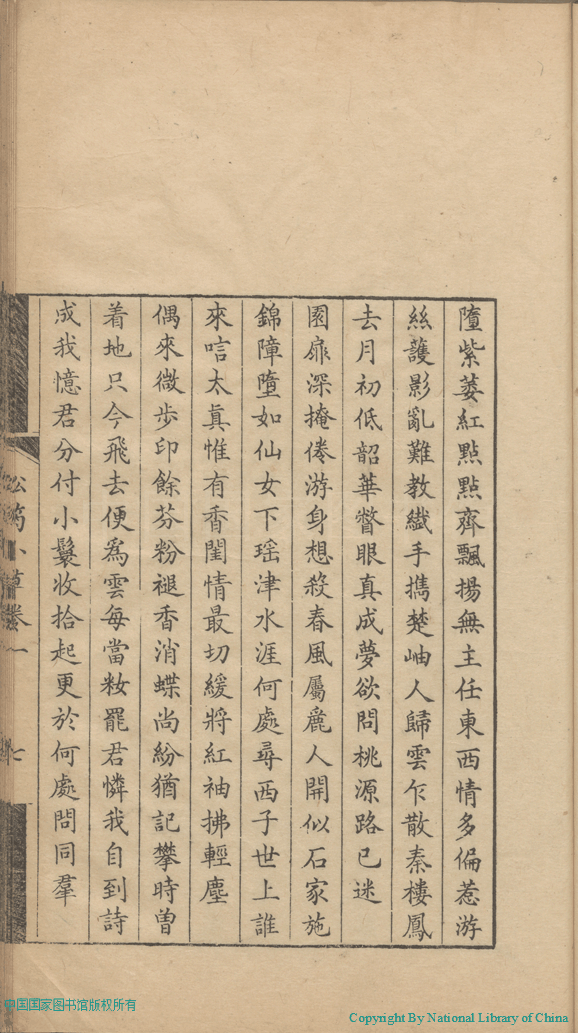 墮紫萎紅點點齊飄揚無主任東西情多偏惹游
絲護影亂難教纖手攜楚岫人歸雲乍散秦樓鳳
去月初低韶華瞥眼真成夢欲問桃源路已迷
園扉深掩倦游身想殺春風屬麗人開似石家施
錦障墮如仙女下瑶津水涯何處尋西子世上誰
來唁太真惟有香閨情最切緩將紅袖拂輕塵
偶來微步印餘芬粉褪香消蝶尚紛猶記攀時曽
着地只今飛去便爲雲每當妝罷君憐我自到詩
成我憶君分付小鬟收拾起更於何處問同羣
小草卷一
七
中国国家图书馆版权所有
Copyright By National Library of China